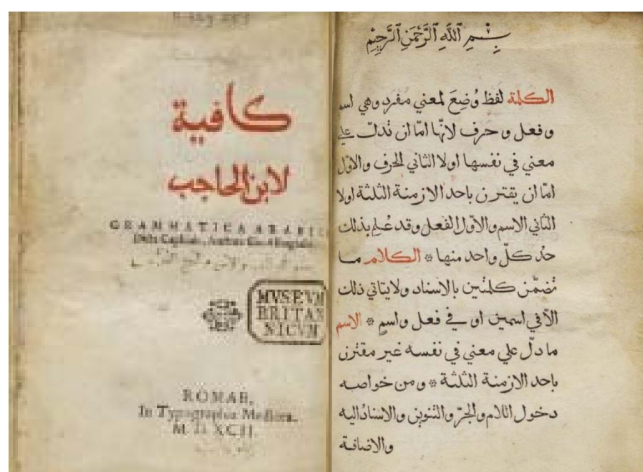 كافية
لابن الحاجب
GRAMMATICA ARABICA
MVSEVM
BRITAN
NICVM
ROMAE,
In Typographia Medicea.
M. D. XCII.
بِسْمِ ٱللَّهِ ٱلرَّحْمَنِ ٱلرَّحِيْمِ
الكلمة لفظ وُضِعَ لمعني مفرد وهي اسم
وفعل وحرف لانّها امّا ان تدلّ علي
معني في نفسها اولا الثاني الحرف والاوّل
امّا ان يقترن باحد الازمنة الثلثة اولا
الثاني الاسم والاوّل الفعل وقد عُلِم بذلك
حدّ كلّ واحد منها * الكلام ما
تضمّن كلمتين بالاسناد ولا يتاتي ذلك
الّا في اسمين او في فعل واسم * الاسم
ما دلّ علي معني في نفسه غير مقترن
باحد الازمنة الثلثة * ومن خواصه
دخول اللام والجرّ والتنوين والاسناد اليه
والاضافة